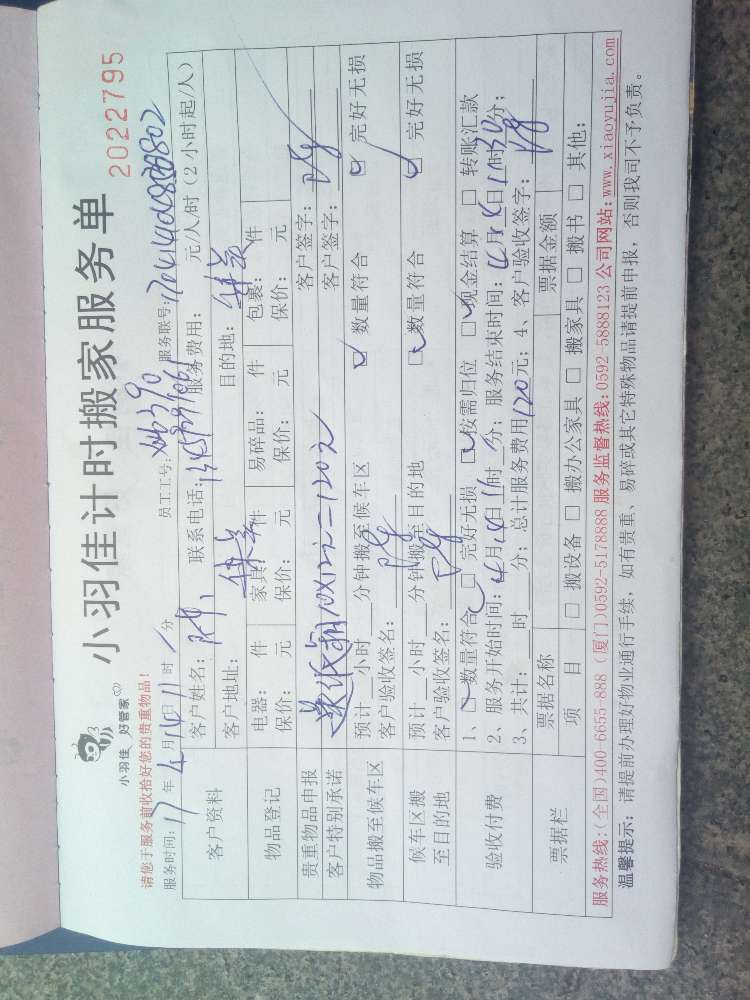 小羽佳 好管家
小羽佳计时搬家服务单
2022795
请您于服务前收拾好您的贵重物品！
员工工号：
服务联号：
服务时间：17年4月14日11时 分
客户资料
客户姓名： 联系电话： 服务费用： 元/人/时（2小时起/人）
客户地址： 目的地：
物品登记
电器： 件 家具： 件 易碎品： 件 包裹： 件
保价： 元 保价： 元 保价： 元 保价： 元
贵重物品申报 送纸箱10X12元=120元 客户签字：
客户特别承诺 客户签字：
物品搬至候车区
预计__小时__分钟搬至候车区 ☑ 数量符合 ☑ 完好无损
客户验收签名：
候车区搬至目的地
预计__小时__分钟搬至目的地 ☑ 数量符合 ☑ 完好无损
客户验收签名：
验收付费
1、☑ 数量符合 ☑ 完好无损 ☑ 按需归位 ☑ 现金结算 □ 转账汇款
2、服务开始时间：4月14日11时 分；服务结束时间：4月14日11时30分；
3、共计：__时__分；总计服务费用120元；4、客户验收签字：
票据栏
票据名称 票据金额
项 目 □ 搬设备 □ 搬办公家具 □ 搬家具 □ 搬书 □ 其他：
服务热线：(全国)400-6655-888 (厦门)0592-5178888 服务监督热线：0592-5888123 公司网站：www.xiaoyujia.com
温馨提示：请提前办理好物业通行手续，如有贵重、易碎或其它特殊物品请提前申报，否则我司不予负责。